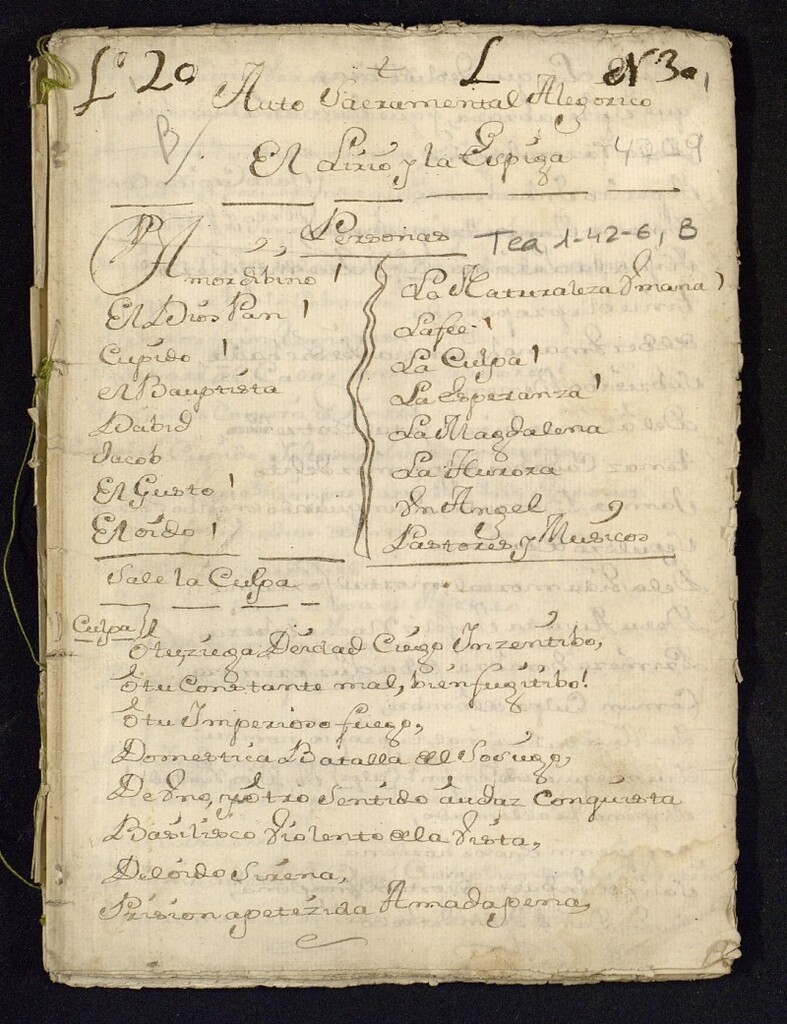 Lº 20 L N 3º
Auto Sacramental Alegorico
B
El Lirio y la Espiga 4 9
Personas Tea 1-42-6, B
Amor dibino
El Dios Pan
Cupido
el Bauptista
Dabid
Jacob
El Gusto
El oido
La Naturaleza Vmana
La fee
La Culpa
La Esperanza
La Magdalena
La Aurora
Vn Angel
Pastores y Musicos
Sale la Culpa
Culpa O tu, ziega Deidad Ciego Inzentibo,
o tu Constante mal, bien fugitibo!
o tu Imperioso fuego,
Domestica Batalla del Sosiego,
De Vno, y otro Sentido audaz Conquista
Basilisco Violento de la Vista,
Del oido Sirena,
Prision apetezida Amada pena,